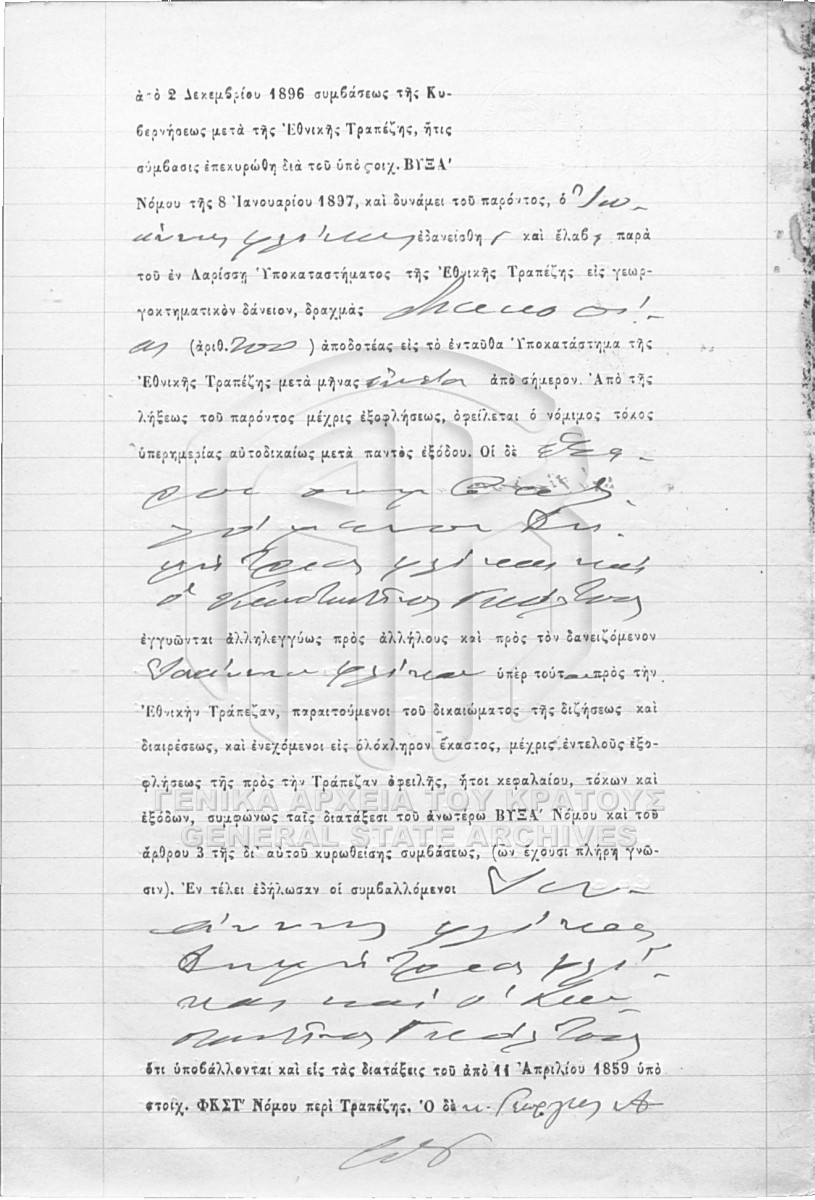 ἀπὸ 2 Δεκεμβρίου 1896 συμβάσεως τῆς Κυ-
βερνήσεως μετὰ τῆς Ἐθνικῆς Τραπέζης, ἥτις
σύμβασις ἐπεκυρώθη διὰ τοῦ ὑπὸ στοιχ. ΒΥΞΑ'
Νόμου τῆς 8 Ἰανουαρίου 1897, καὶ δυνάμει τοῦ παρόντος, ὁ Ἰω-
άννης Φλίκας ἐδανείσθη καὶ ἔλαβε παρὰ
τοῦ ἐν Λαρίσσῃ Ὑποκαταστήματος τῆς Ἐθνικῆς Τραπέζης εἰς γεωρ-
γοκτηματικὸν δάνειον, δραχμὰς διακοσί-
ας (ἀριθ. 200) ἀποδοτέας εἰς τὸ ἐνταῦθα Ὑποκατάστημα τῆς
Ἐθνικῆς Τραπέζης μετὰ μῆνας ἐννέα ἀπὸ σήμερον. Ἀπὸ τῆς
λήξεως τοῦ παρόντος μέχρις ἐξοφλήσεως, ὀφείλεται ὁ νόμιμος τόκος
ὑπερημερίας αὐτοδικαίως μετὰ παντὸς ἐξόδου. Οἱ δὲ ἕτε-
ροι συμβαλ-
λόμενοι Δη-
μήτριος Φλίκας καὶ
ὁ Κωνσταντῖνος
ἐγγυῶνται ἀλληλεγγύως πρὸς ἀλλήλους καὶ πρὸς τὸν δανειζόμενον
Ἰωάννην Φλίκαν ὑπὲρ τούτου πρὸς τὴν
Ἐθνικὴν Τράπεζαν, παραιτούμενοι τοῦ δικαιώματος τῆς διζήσεως καὶ
διαιρέσεως, καὶ ἐνεχόμενοι εἰς ὁλόκληρον ἕκαστος, μέχρις ἐντελοῦς ἐξο-
φλήσεως τῆς πρὸς τὴν Τράπεζαν ὀφειλῆς, ἤτοι κεφαλαίου, τόκων καὶ
ΓΕΝΙΚΑ ΑΡΧΕΙΑ ΤΟΥ ΚΡΑΤΟΥΣ
ἐξόδων, συμφώνως ταῖς διατάξεσι τοῦ ἀνωτέρω ΒΥΞΑ' Νόμου καὶ τοῦ
GENERAL STATE ARCHIVES
ἄρθρου 3 τῆς δι' αὐτοῦ κυρωθείσης συμβάσεως, (ὧν ἔχουσι πλήρη γνῶ-
σιν). Ἐν τέλει ἐδήλωσαν οἱ συμβαλλόμενοι Ἰω-
άννης Φλίκας
Δημήτριος Φλί-
κας καὶ ὁ Κων-
σταντῖνος
ὅτι ὑποβάλλονται καὶ εἰς τὰς διατάξεις τοῦ ἀπὸ 11 Ἀπριλίου 1859 ὑπὸ
στοιχ. ΦΚΣΤ' Νόμου περὶ Τραπέζης. Ὁ δὲ κ. Γεώργιος Α